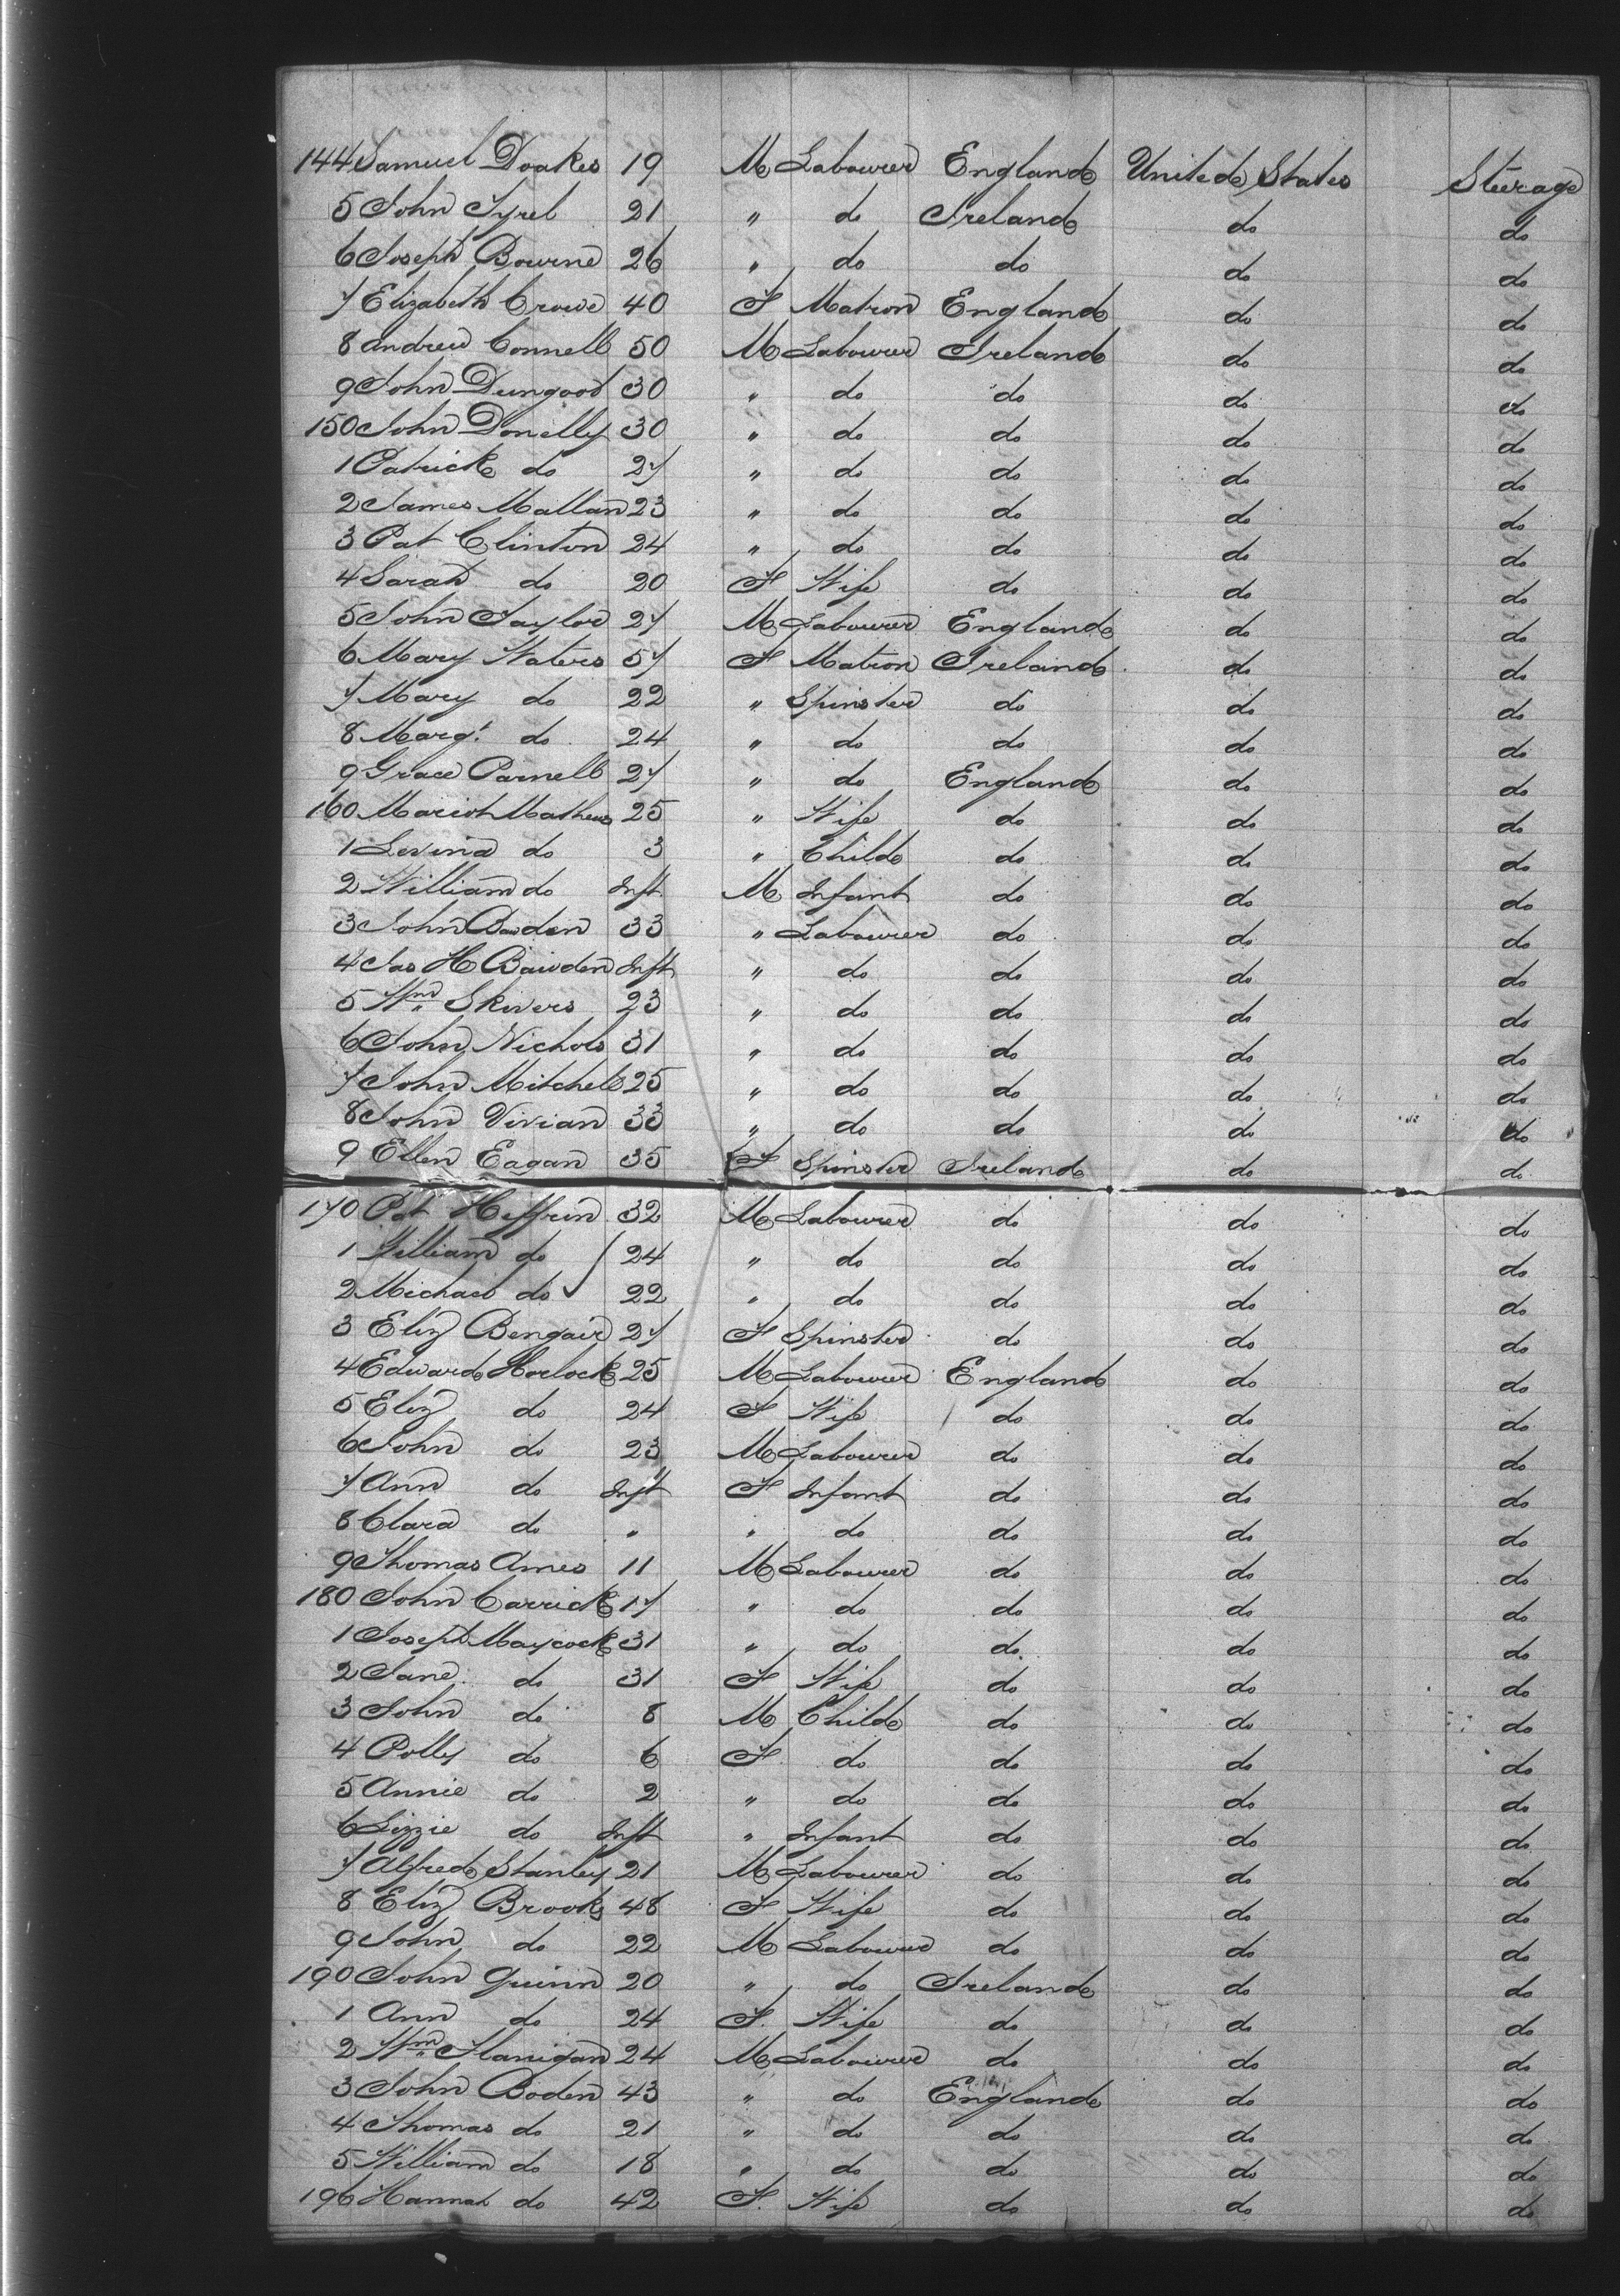 144 Samuel Doakes 19 M Labourer England United States Steerage
5 John Tyrel 21 " do Ireland do do
6 Joseph Bourne 26 " do do do do
7 Elizabeth Crowe 40 F Matron England do do
8 Andrew Connell 50 M Labourer Ireland do do
9 John Dungood 30 " do do do do
150 John Donelly 30 " do do do do
1 Patrick do 27 " do do do do
2 James Mallan 23 " do do do do
3 Pat Clinton 24 " do do do do
4 Sarah do 20 F Wife do do do
5 John Taylor 27 M Labourer England do do
6 Mary Waters 57 F Matron Ireland do do
7 Mary do 22 " Spinster do do do
8 Margt do 24 " do do do do
9 Grace Parnell 27 " do England do do
160 Mariot Mathews 25 " Wife do do do
1 Levina do 3 " Child do do do
2 William do Inft M Infant do do do
3 John Bawden 33 " Labourer do do do
4 Jas H Bawden Inft " do do do do
5 Wm Skivers 23 " do do do do
6 John Nichols 31 " do do do do
7 John Mitchell 25 " do do do do
8 John Vivian 33 " do do do do
9 Ellen Eagan 35 F Spinster Ireland do do
170 Pat Heffrin 32 M Labourer do do do
1 William do 24 " do do do do
2 Michael do 22 " do do do do
3 Eliz Bengair 27 F Spinster do do do
4 Edward Horlock 25 M Labourer England do do
5 Eliz do 24 F Wife do do do
6 John do 23 M Labourer do do do
7 Ann do Inft F Infant do do do
8 Clara do " " do do do do
9 Thomas Ames 11 M Labourer do do do
180 John Carrick 17 " do do do do
1 Joseph Maycock 31 " do do do do
2 Jane do 31 F Wife do do do
3 John do 8 M Child do do do
4 Polly do 6 F do do do do
5 Annie do 2 " do do do do
6 Lizzie do Inft " Infant do do do
7 Alfred Stanley 21 M Labourer do do do
8 Eliz Brooks 48 F Wife do do do
9 John do 22 M Labourer do do do
190 John Quinn 20 " do Ireland do do
1 Ann do 24 F. Wife do do do
2 Wm Flanigan 24 M Labourer do do do
3 John Boden 43 " do England do do
4 Thomas do 21 " do do do do
5 William do 18 " do do do do
196 Hannah do 42 F. Wife do do do